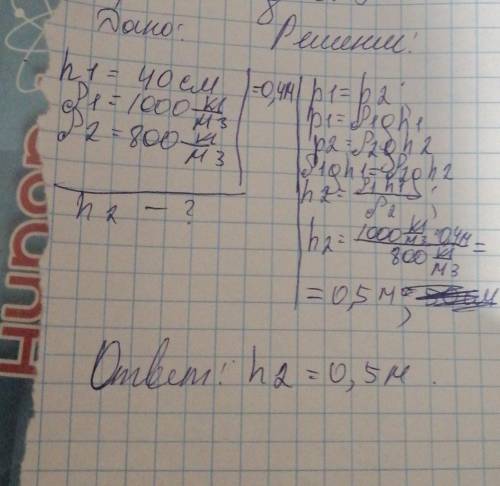 8
Дано:
Решение:
h1 = 40 см = 0,4 м
ρ1 = 1000 кг/м3
ρ2 = 800 кг/м3
h2 - ?
p1 = p2
p1 = ρ1gh1
p2 = ρ2gh2
ρ1gh1 = ρ2gh2
h2 = ρ1h1/ρ2
h2 = 1000 кг/м3 · 0,4м / 800 кг/м3 =
= 0,5 м
Ответ: h2 = 0,5м.